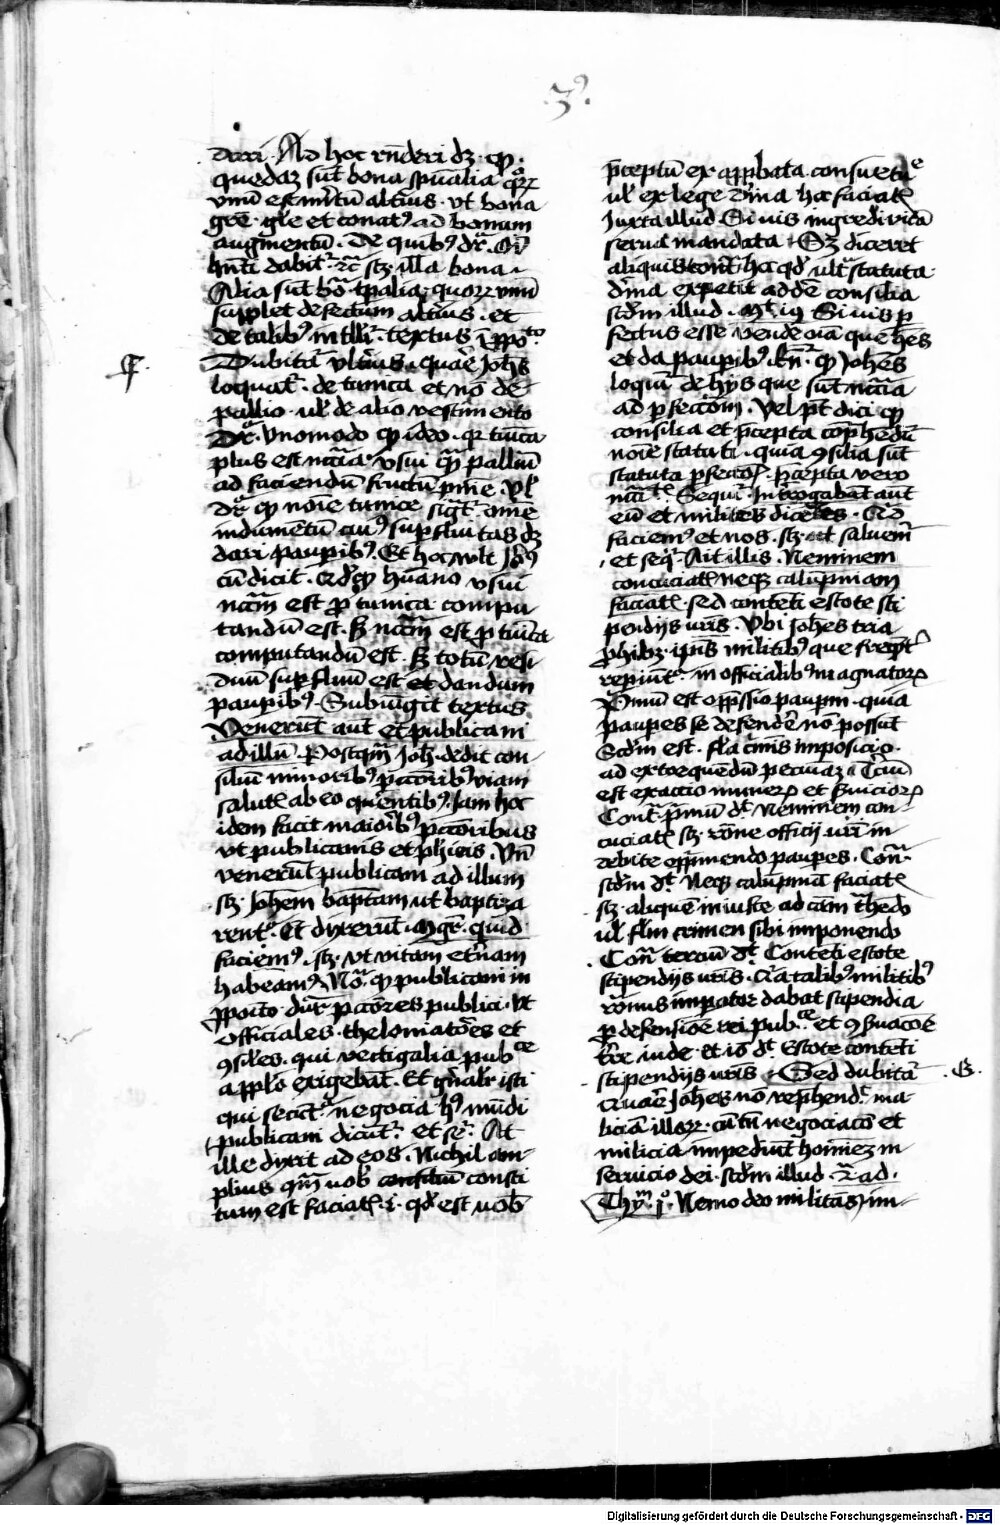 .3.
dari. Ad hoc rn̄deri dʒ. qp.
quedaʒ sūt bona spūalia quorꝝ
vnū est meritū alterius. vt bona
augmentū. De quibꝰ dr̄. Oi
hn̄ti dabitᷣ. rc̄ sʒ illa bona.
Alia sūt bo. tp̄alia. quorꝝ vnū
supplet defectum alterius. et
de talibꝰ intlli. textus ī ppo.to
Dubitā vlterius. quare Joh̄s
loquat. de tunica et nō de
pallio. ul de alio vestimento
Dr. vnomodo qp ideo. qr tūica
plus est nc̄ia vsui qm palliū
ad faciendū fructū pnīe. Vl
dr qp noīe tunice sigt. omē
indumentū cuiꝰ supfluitas dʒ
dari pauperibꝰ. Et hoc vult
cū dicit. qd qp humano vsui
ncm est pro tunica compu
tandū est. sʒ ncm est pro tūica
computandū est. sʒ totū resi
duū supfluū est et dandum
paupibꝰ. Subiūgit textus
Venerūt aut et publicam
ad illū. Postqm Joh. dedit con
siliū minoribꝰ pctoribꝰ viam
salutꝭ ab eo querentibꝰ. Jam hoc
idem facit maioribꝰ pctoribus
vt publicanis et phīeis. Vn
venerūt publicam ad illum
.sʒ. Johēm baptam ut baptiza
rentᷣ. Et dixerūt. Mgr. quid
faciemꝰ. sʒ. vt vitam etnam
habeamꝰ. No. qp publicani in
pposito. dūr pctores publici. vt
officiales. thelomatores et
9siles. qui vectigalia pub.ce
applo exigebāt. Et gn̄alr isti
qui sectᷣ. negocia hꝰ mūdi
publicani dicūt. et se. At
ille dixit ad eos. Nichil am-
plius qm uob consitum consti
tum est faciatꝭ. i. qd est uob
p̄ceptū ex approbata consuetu.de
ul ex lege diīna hoc faciatꝭ
Juxta illud Si uis ingredi vitā
serua mandata. Sʒ diceret
aliquis cont. hoc qd ult statuta
diīna expetit addē consilia
scdm illud. Mt. 19 Si uis p
fectus esse vende oīa que hēs
et da paupibꝰ. Rn. qp Johēs
loquī de hijs que sūt nc̄ia
ad pfectiōm. Vel pt dici qp
consilia et p̄cepta cōphedū
noīe statuti. quia 9silia sūt
statuta pfectōꝭ. p̄cepta vero
Sequiᷣ. Introgabāt aut
eū et milites dicētes. Qd
faciemꝰ et nos. sʒ. ut saluemᷣ
et seqᷣ. Ait illis. Neminem
concuciatꝭ neqʒ calūpniam
faciatꝭ. sed contēti estote sti
pendijs uris. Vbi Johes tria
phibʒ. ipīs militibꝰ que freqnt
repiūt. in officialibꝰ magnatorꝝ
Primū est oppssio paupm. quia
paupes se defendē nō possūt
Scdm est. flā cmis imposicio.
ad extorquendū pecuiaʒ. Terciū
est exactio munerꝝ et suiciorꝝ
Cont. pmū dt. Neminem con
cuciatꝭ. sʒ. rōne officij uri in
debite oppmendo paupes. Con.
scdm dt. Neqʒ calūpniā faciatꝭ
sʒ. aliquē iniuste ad cām thedo
ul flm crimen sibi imponendo
Con. terciū dt. Contēti estote
stipendijs uris. Qia talibꝰ militibꝰ
romus impator dabat stipendia
p defensiōe rei pub.ce et 9suacōe
tre iude. et iō dt. Estote contēti
stipendijs uris. Sed dubitā
Quare Johēs nō rephend. ma
liciā illorꝝ. cū tn negociacō et
milicia impediūt homineʒ in
seruicio dei. scdm illud. 2ᵃ ad.
Thym. 1o. Nemo deo militās im-
.G.
Digitalisierung gefördert durch die Deutsche Forschungsgemeinschaft - DFG